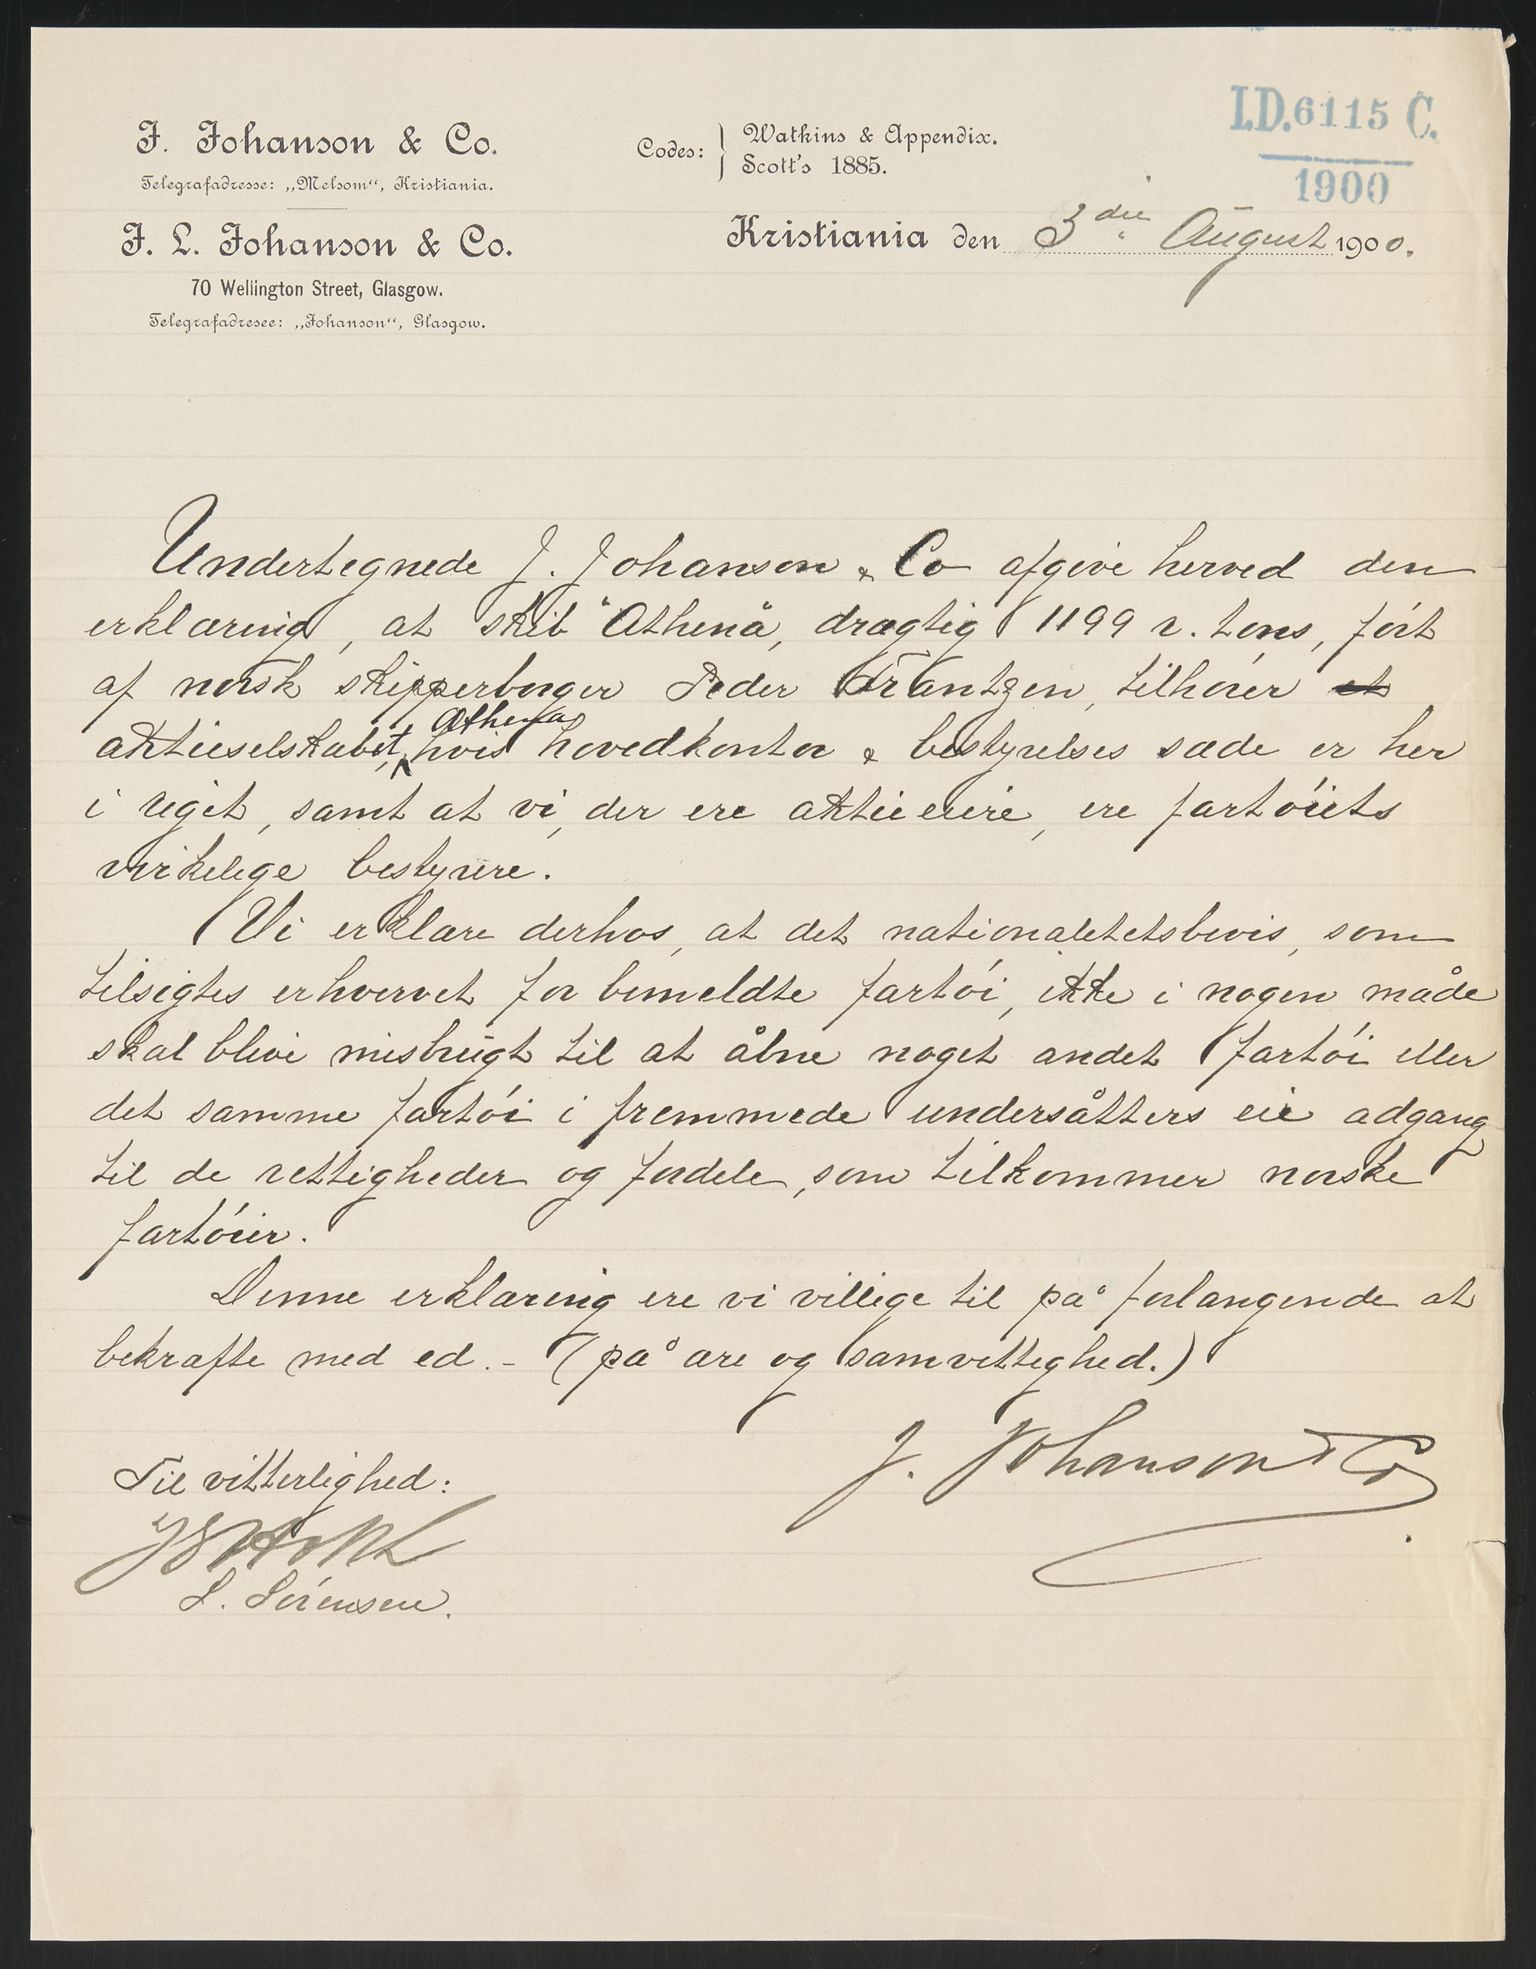 J. Johanson & Co.
Telegrafadresse: „Melsom“, Kristiania.
J. L. Johanson & Co.
70 Wellington Street, Glasgow.
Telegrafadresee: „Johanson“, Glasgow.
Codes: } Watkins & Appendix.
Scott's 1885.
I.D. 6115 C.
1900
Kristiania den 3die August 1900.
Undertegnede J. Johanson & Co afgive herved den
erklæring, at skib "Athena", drægtig 1199 r. tons, ført
af norsk skipperborger Peder Frantzen, tilhører et
aktieselskabet, Athena hvis hovedkontor & bestyrelses sæde er her
i riget, samt at vi, der ere aktieeiere, ere fartøiets
virkelige bestyrere.
Vi erklære derhos, at det nationalitetsbevis, som
tilsigtes erhvervet for bemeldte fartøi, ikke i nogen måde
skal blive misbrugt til at åbne noget andet fartøi eller
det samme fartøi i fremmede undersåtters eie adgang
til de rettigheder og fordele, som tilkommer norske
fartøier.
Denne erklæring ere vi villige til på forlangende at
bekræfte med ed. - (på ære og samvittighed.)
J. Johanson & Co
Til vitterlighed:
S. Sørensen.